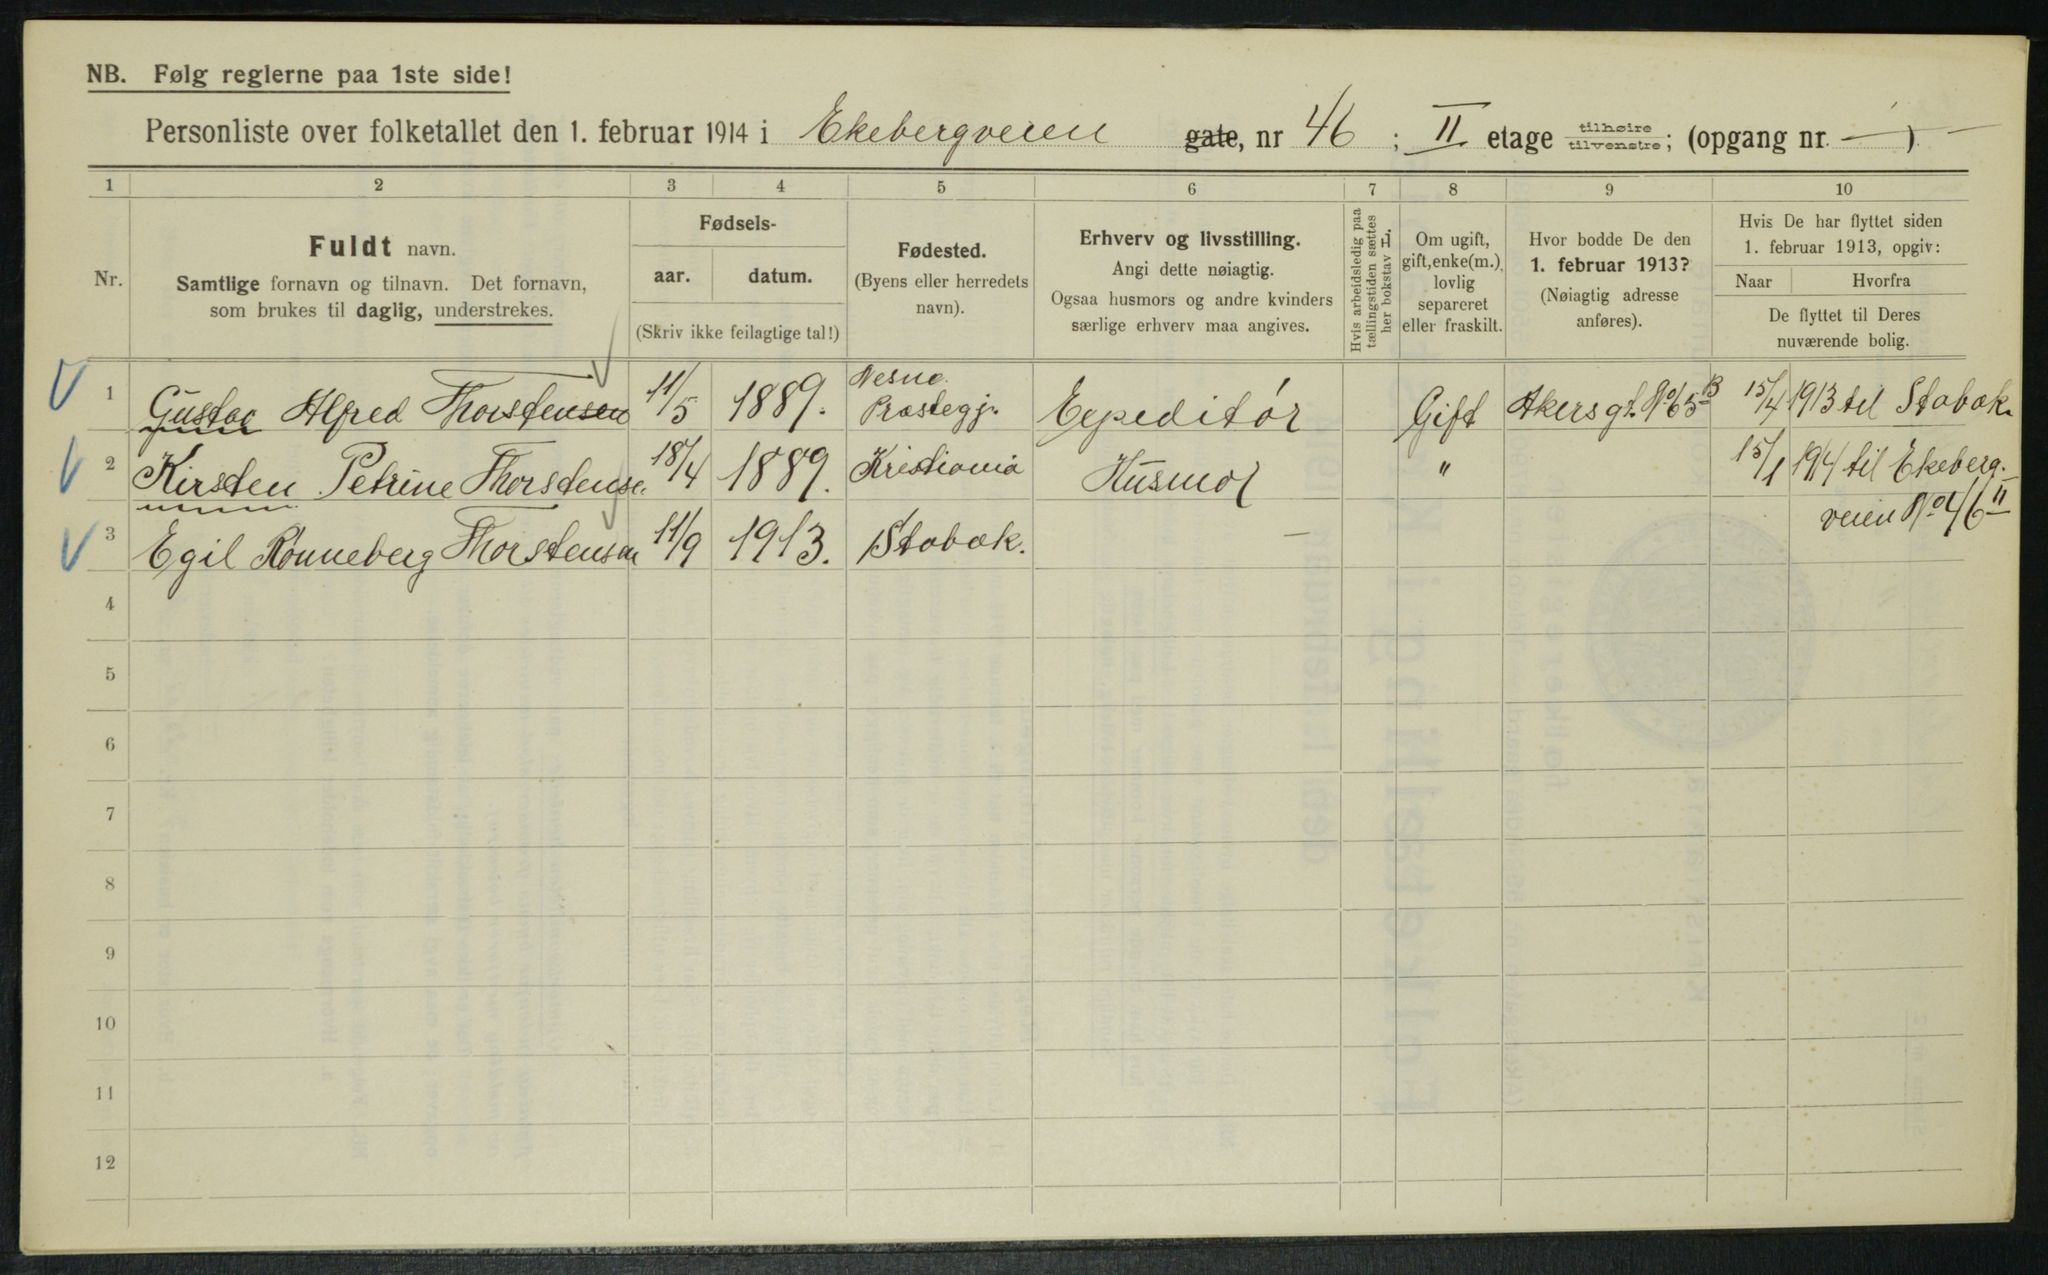 NB. Følg reglerne paa 1ste side!
Personliste over folketallet den 1. februar 1914 i Ekebergveien gate, nr 46 ; II etage tilhøire tilvenstre; (opgang nr. — )
1 2 3 4 5 6 7 8 9 10
Nr.
Fuldt navn.
Samtlige fornavn og tilnavn. Det fornavn,
som brukes til daglig, understrekes.
Fødsels-
aar. datum.
(Skriv ikke feilagtige tal!)
Fødested.
(Byens eller herredets
navn).
Erhverv og livsstilling.
Angi dette nøiagtig.
Ogsaa husmors og andre kvinders
særlige erhverv maa angives.
Hvis arbeidsledig paa
tællingstiden sættes
her bokstav L.
Om ugift,
gift, enke(m.),
lovlig
separeret
eller fraskilt.
Hvor bodde De den
1. februar 1913?
(Nøiagtig adresse
anføres).
Hvis De har flyttet siden
1. februar 1913, opgiv:
Naar Hvorfra
De flyttet til Deres
nuværende bolig.
1 Gustav Alfred Thorstensen 11/5 1889. Nesne Præstegj. Expeditør Gift Akersgt. No 65 B 15/4 1913 til Stabæk.
2 Kirsten Petrine Thorstense. 18/4 1889. Kristiania Husmor " 15/1 1914 til Ekeberg-
veien No 46 II
3 Egil Rønneberg Thorstensen 11/9 1913. Stabæk. —
4
5
6
7
8
9
10
11
12